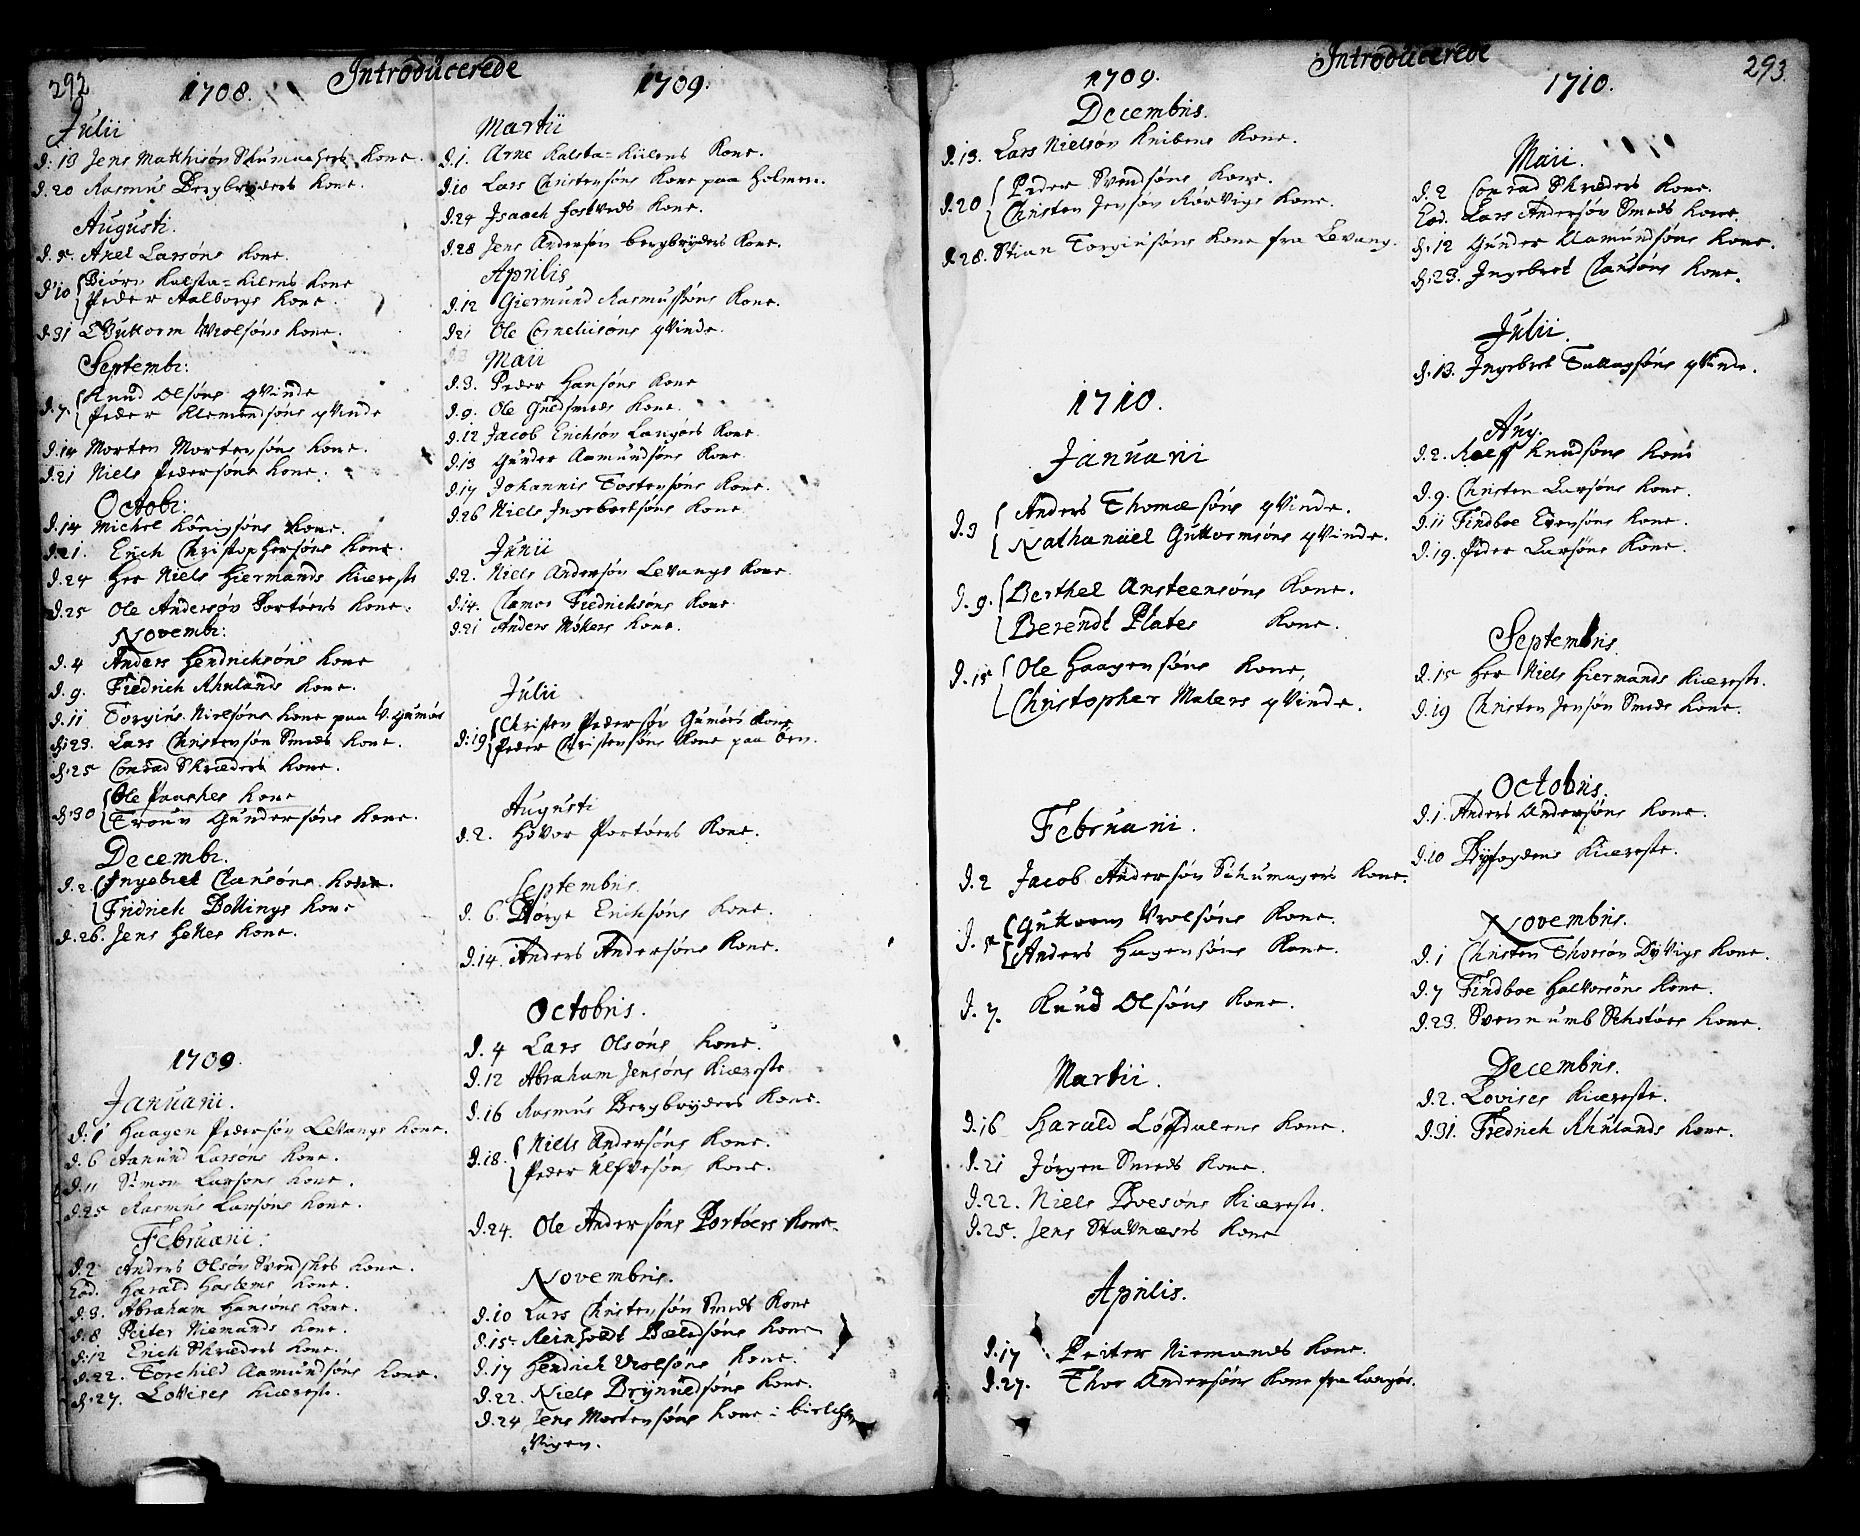 292
Introducerede
1708.
Julii
d: 13 Jens Matthisøn Skumachers Kone.
d. 20 Rasmus Bergbryders Kone.
Augusti.
d. 5 Axel Larsøns Kone.
d. 10 Biørn Kalsta-Kilens Kone
Peder Aalborgs Kone.
d. 31 Guttorm Wrolsøns Kone.
Septembr:
d. 7. Knud Olsøns qvinde
Peder Klemendsøns qvinde
d. 14 Morten Mortensøns Kone.
d. 21 Niels Pedersøns Kone.
Octobr:
d. 14 Michel Königsøns Kone.
d. 21. Erich Christophersøns Kone.
d. 24 Her Niels Hiermands Kiæreste
d. 25 Ole Andersøn Portøers Kone.
Novembr:
d. 4 Anders Hendrichsøns Kone
d. 9. Fredrich Ahulands Kone.
d. 11 Torgius Nielsøns Kone paa V. Gumøe
d. 23. Lars Christensøn Smeds Kone.
d. 25 Conrad Skræders Kone.
d. 30 Ole Paaskes Kone
Troun Gundersøns Kone.
Decembr.
d. 2 Ingebret Clausøns Kone.
Fridrich Bollings Kone
d. 26. Jens Holtes Kone.
1709.
Januarii.
d. 1 Haagen Pedersøn Levangs Kone.
d. 6 Aanund Larsøns Kone.
d. 11 Simon Larsøns Kone.
d. 25 Rasmus Larsøns Kone.
Februarii:
d. 2 Anders Olsøn Svendskes Kone.
Eod. Harald Haslems Kone.
d. 3. Abraham Hansøns Kone.
d. 8 Peiter Niemands Kone.
d. 12 Erich Skræders Kone.
d. 22. Torchild Aamundsøns Kone.
d. 27. Lovises Kiæreste.
1709.
Martii
d. 1. Arne Kalsta-Kilens Kone.
d. 10 Lars Christensøns Kone paa Holmen.
d. 24 Isaach Fostveds Kone.
d. 28 Jens Andersøn bergbryders Kone.
Aprilis
d. 12 Giermund Rasmussøns Kone.
d. 21 Ole Corneliisøns qvinde.
Maii
d. 3. Peder Hansøns Kone
d. 9. Ole Guldsmeds Kone.
d. 12 Jacob Erichsøn Langøes Kone.
d. 13 Gunder Aamundsøns Kone.
d. 17 Johannis Tostensøns Kone.
d. 26 Niels Ingebretsøns Kone
Junii
d. 2. Niels Andersøn Levangs Kone.
d. 14. Clamor Fredrichsøns Kone
d. 21 Anders Møkers Kone.
Julii
d. 19 Christen Pedersøn Gumøes Kone
Peder Christensøns Kone paa Øen.
Augusti
d. 2. Hovor Portøers Kone.
Septembris.
d. 6. Børge Erichsøns Kone.
d. 14. Anders Andersøns Kone.
Octobris.
d. 4 Lars Olsøns Kone.
d. 12 Abraham Jensøns Kiæreste
d. 16 Rasmus Bergbryders Kone.
d. 18. Niels Andersøns Kone.
Peder Ulfvesøns Kone.
d. 24. Ole Andersøns Portøers Kone.
Novembris.
d. 10 Lars Christensøn Smeds Kone
d. 15 Reinholdt Beldsøns Kone
d. 17 Hendrich Wrolsøns Kone.
d. 22. Niels Brynildsøns Kone.
d. 24 Jens Mortensøns Kone i birkke
Vigen.
293.
Introducerede
1709.
Decembris.
d. 13. Lars Nielsøn Knibens Kone.
d. 20 Peder Svendsøns Kone.
Christen Jensøn Rørvigs Kone.
d. 28. Stian Torgiusøns Kone fra Levang.
1710.
Januarii
d. 3 Anders Thomæsøns qvinde.
Nathanäel Guttormsøns qvinde.
d. 9. Berthel Ansteensøns Kone.
Berendt Plates Kone.
d. 15 Ole Haagensøns Kone,
Christopher Malers qvinde.
Februarii.
d. 2 Jacob Andersøn Schumagers Kone.
d. 5 Guttorm Vrolsøns Kone.
Anders Hagensøns Kone.
d. 7. Knud Olsøns Kone.
Martii.
d. 16 Harald Løfdalens Kone.
d. 21 Jørgen Smeds Kone.
d. 22. Niels Boesøns Kiæreste.
d. 25. Jens Stavnæses Kone
Aprilis.
d. 17 Peiter Niemands Kone.
d. 27. Thor Andersøns Kone fra Langøe.
1710.
Maii.
d. 2 Conrad Skræders Kone.
Eod. Lars Andersøn Smeds Kone.
d. 12 Gunder Aamundsøns Kone.
d. 23. Ingebret Clausøns Kone.
Julii.
d. 13. Ingebret Tallagsøns qvinde.
Aug.
d. 2. Roef Knudsøns Kone
d. 9. Christen Larsøns Kone.
d. 11 Findboe Evensøns Kone.
d. 19. Peder Larsøns Kone.
Septembris.
d. 15 Her Niels Hiermands Kiæreste.
d. 19 Christen Jensøn Smeds Kone.
Octobris.
d. 1. Anders Andersøns Kone.
d. 10 Byfogdens Kiæreste.
Novembris.
d. 1 Christen Thorsøn Dyvigs Kone.
d. 7 Findboe Halvorsøns Kone.
d. 23. Svennumb Schotøes Kone.
Decembris.
d. 2. Lovises Kiæreste.
d. 31. Fredrich Ahulands Kone.